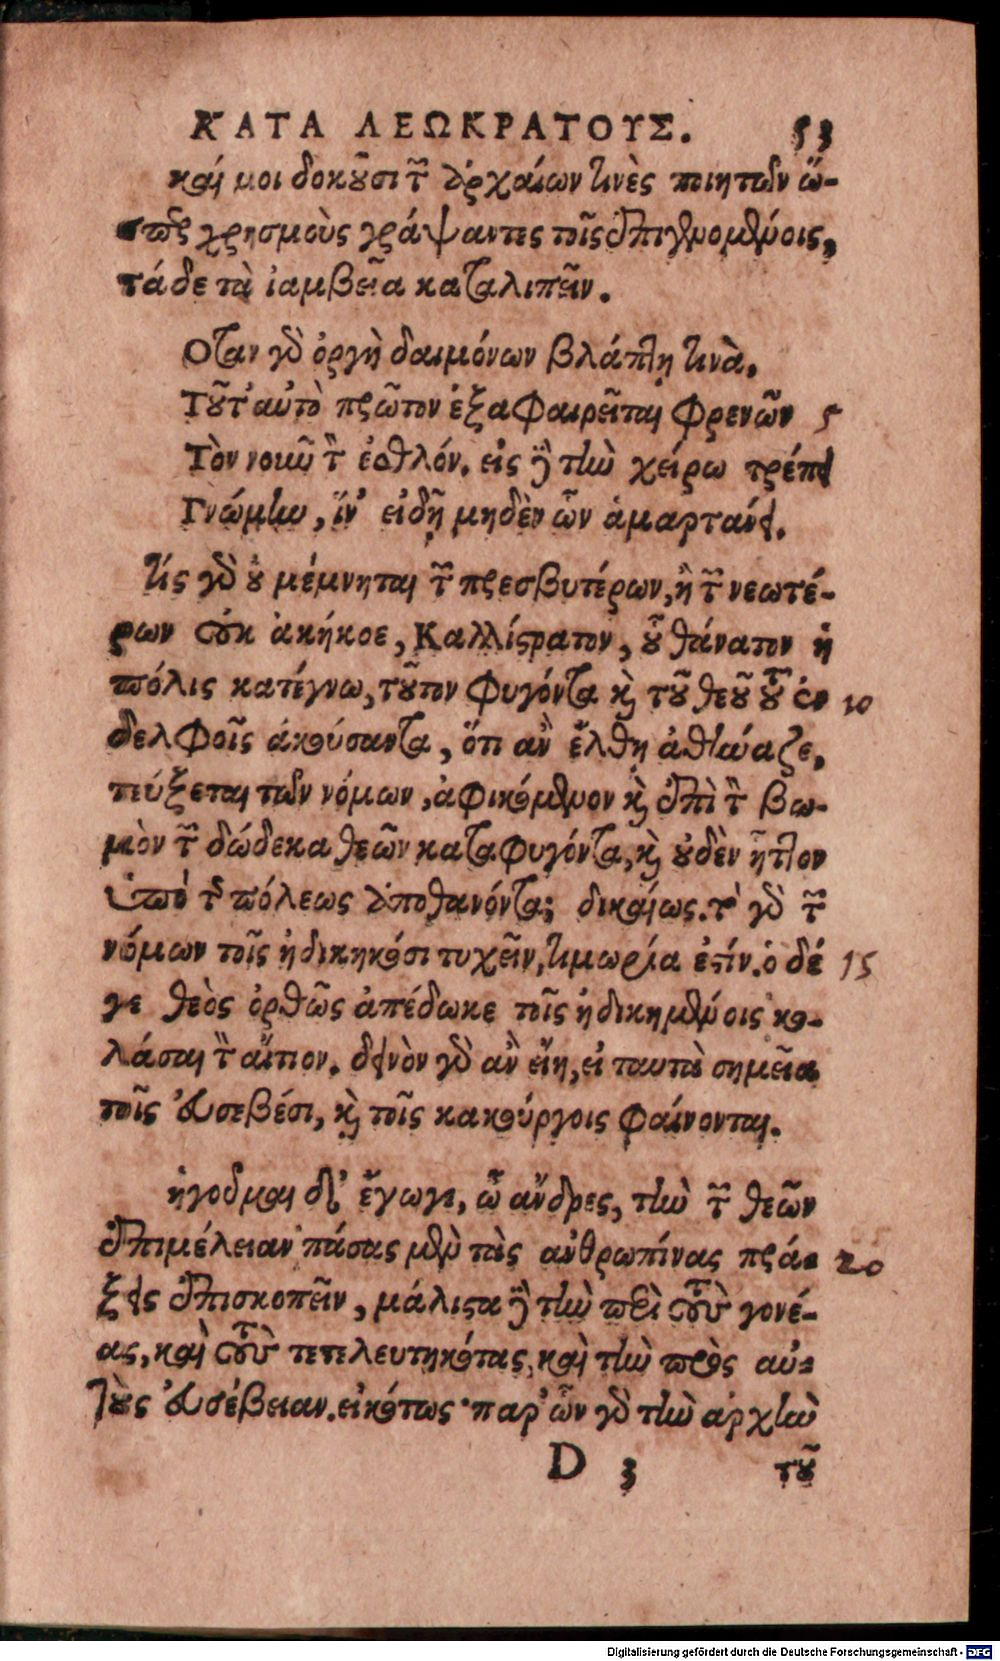 ΚΑΤΑ ΛΕΩΚΡΑΤΟΥΣ. 53
καί μοι δοκοῦσι τῶν ἀρχαίων τινὲς ποιητῶν ὥ-
σπερ χρησμοὺς γράψαντες τοῖς ἐπιγενομένοις,
τάδε τὰ ἰαμβεῖα καταλιπεῖν.
Οταν γὰρ ὀργὴ δαιμόνων βλάπτῃ τινὰ.
Τοῦτ' αὐτὸ πρῶτον ἐξαφαιρεῖται φρενῶν 5
Τὸν νοῦν τὸν ἐσθλόν. εἰς δὲ τὴν χείρω τρέπει
Γνώμην, ἵν' εἰδῇ μηδὲν ὧν ἁμαρτάνει.
τίς γὰρ οὐ μέμνηται τῶν πρεσβυτέρων, ἢ τῶν νεωτέ-
ρων οὐκ ἀκήκοε, Καλλίστρατον, οὗ θάνατον ἡ
πόλις κατέγνω, τοῦτον φυγόντα καὶ τοῦ θεοῦ τοῦ ἐν 10
δελφοῖς ἀκούσαντα, ὅτι ἂν ἔλθῃ ἀθήναζε,
τεύξεται τῶν νόμων, ἀφικόμενον καὶ ἐπὶ τὸν βω-
μὸν τῶν δώδεκα θεῶν καταφυγόντα, καὶ οὐδὲν ἧττον
ὑπὸ τῆς πόλεως ἀποθανόντα; δικαίως. τὸ γὰρ τῶν
νόμων τοῖς ἠδικηκόσι τυχεῖν, τιμωρία ἐστίν. ὁ δέ 15
γε θεὸς ὀρθῶς ἀπέδωκε τοῖς ἠδικημένοις κο-
λάσαι τὸν αἴτιον. δεινὸν γὰρ ἂν εἴη, εἰ ταυτὰ σημεῖα
τοῖς εὐσεβέσι, καὶ τοῖς κακούργοις φαίνονται.
ἡγοῦμαι δ' ἔγωγε, ὦ ἄνδρες, τὴν τῶν θεῶν
ἐπιμέλειαν πάσας μὲν τὰς ἀνθρωπίνας πρά- 20
ξεις ἐπισκοπεῖν, μάλιστα δὲ τὴν περὶ τοὺς γονέ-
ας, καὶ τοὺς τετελευτηκότας, καὶ τὴν πρὸς αὐ-
τοὺς εὐσέβειαν. εἰκότως· παρ' ὧν γὰρ τὴν ἀρχὴν
D 3 τοῦ
Digitalisierung gefördert durch die Deutsche Forschungsgemeinschaft - DFG